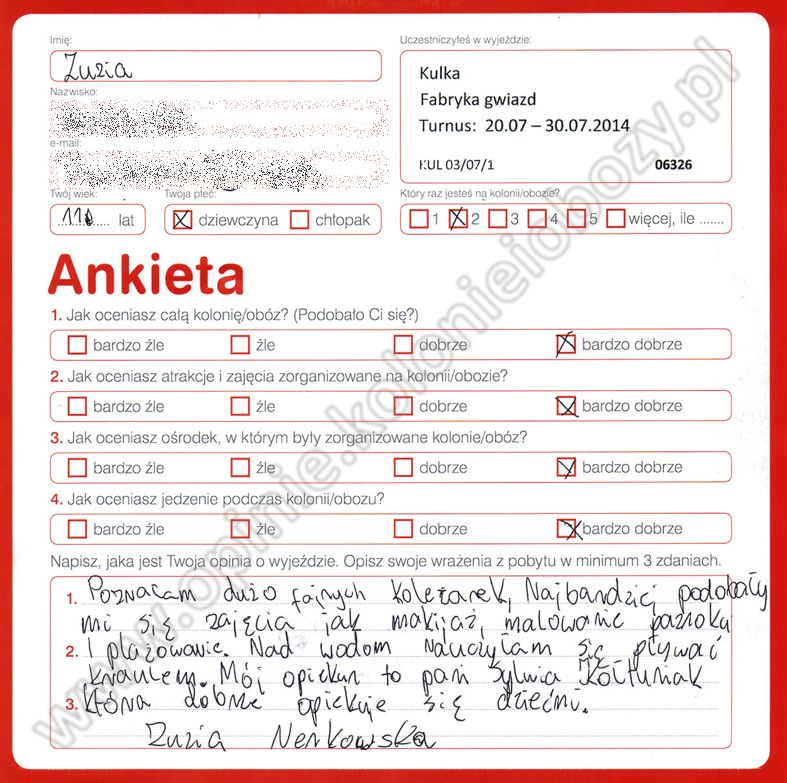 Imię:
Zuzia
Nazwisko:
e-mail:
Twój wiek:
11 lat
Twoja płeć:
dziewczyna chłopak
Uczestniczyłeś w wyjeździe:
Kulka
Fabryka gwiazd
Turnus: 20.07 – 30.07.2014
KUL 03/07/1 06326
Który raz jesteś na kolonii/obozie?
1 2 3 4 5 więcej, ile .......
Ankieta
1. Jak oceniasz całą kolonię/obóz? (Podobało Ci się?)
bardzo źle źle dobrze bardzo dobrze
2. Jak oceniasz atrakcje i zajęcia zorganizowane na kolonii/obozie?
bardzo źle źle dobrze bardzo dobrze
3. Jak oceniasz ośrodek, w którym były zorganizowane kolonie/obóz?
bardzo źle źle dobrze bardzo dobrze
4. Jak oceniasz jedzenie podczas kolonii/obozu?
bardzo źle źle dobrze bardzo dobrze
Napisz, jaka jest Twoja opinia o wyjeździe. Opisz swoje wrażenia z pobytu w minimum 3 zdaniach.
1. Poznałam dużo fajnych koleżanek, Najbardziej podobały
mi się zajęcia jak makijaż, malowanie paznokci
2. I plażowanie. Nad wodom nauczyłam się pływać
kraulem. Mój opiekun to pani Sylwia Kołtuniak
3. Która dobrze opiekuje się dziećmi.
Zuzia Nerkowska
www.opinie.kolonieiobozy.pl